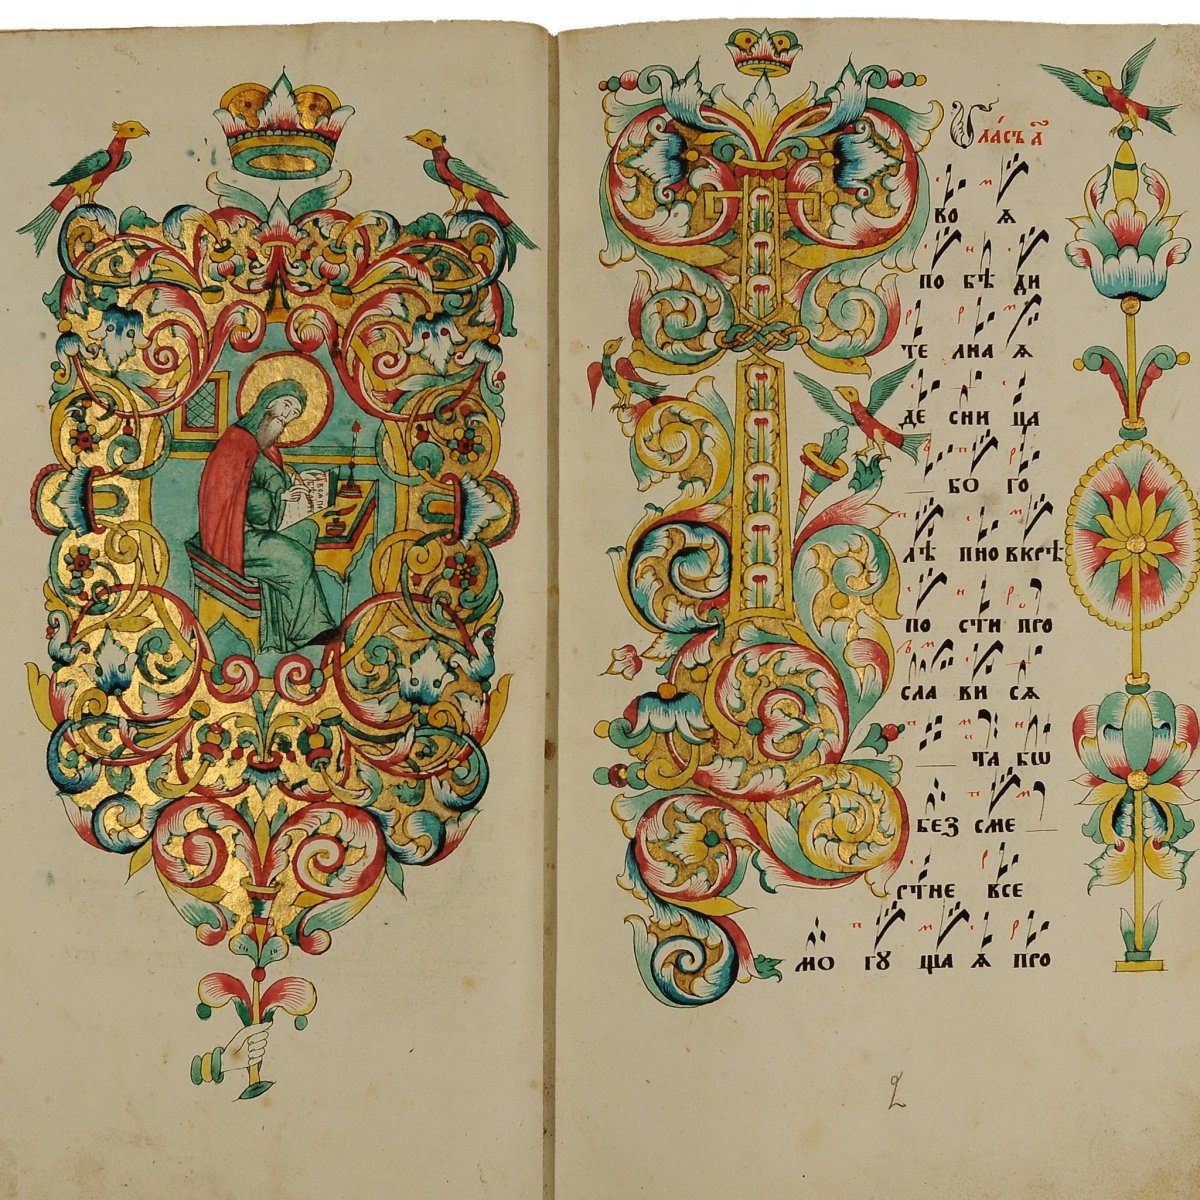 Гла́съ а҃
ТВОЯ
ПО БѢ ДИ
ТЕ ЛНАЯ
ДЕ СНИ ЦА
БО ГО
ЛѢ ПНО ВКРѢ
ПО СТИ ПРО
СЛА ВИ СѦ
ТА БѠ
БЕЗ СМЕ
РТНЕ ВСЕ
МО ГУ ЩАЯ ПРО
2